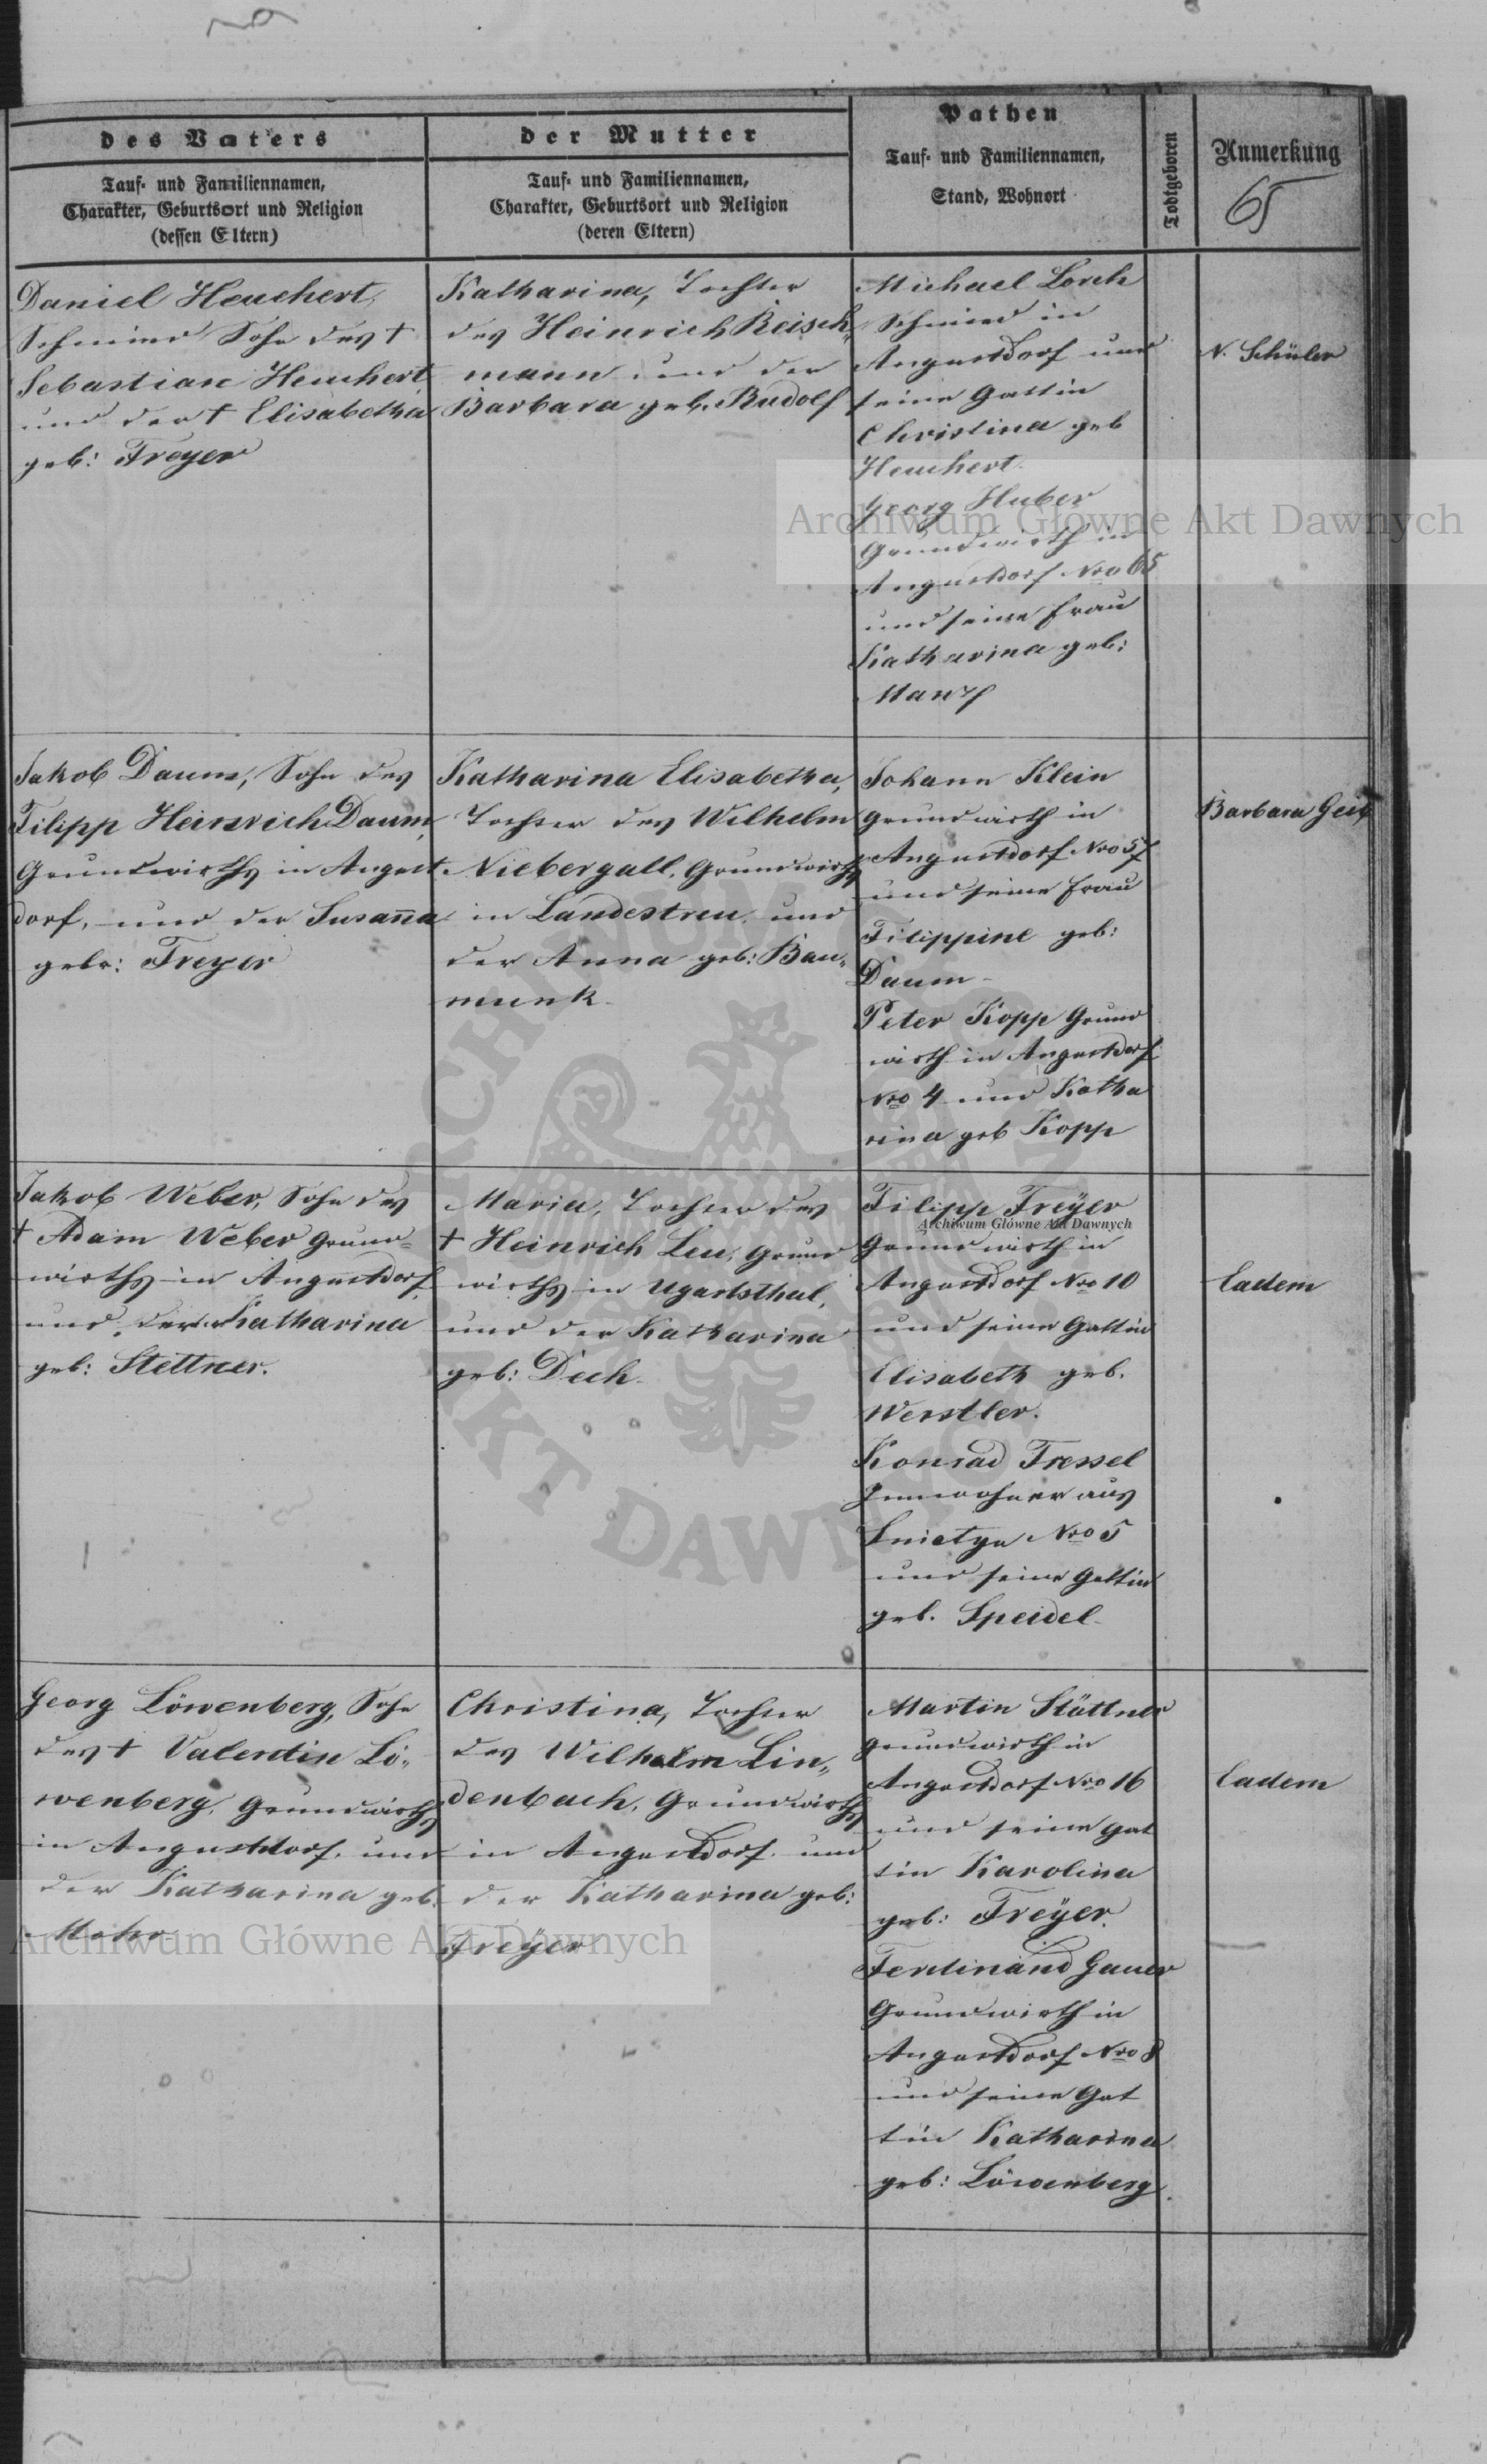 des Vaters
Tauf- und Familiennamen,
Charakter, Geburtsort und Religion
(dessen Eltern)
der Mutter
Tauf- und Familiennamen,
Charakter, Geburtsort und Religion
(deren Eltern)
Pathen
Tauf- und Familiennamen,
Stand, Wohnort
Todtgeboren
Anmerkung
65
Daniel Heuchert,
Schmied Sohn des †
Sebastian Heuchert
und der † Elisabetha
geb: Freyer
Katharina, Tochter
des Heinrich Reisch„
mann und der
Barbara geb. Rudolf
Michael Lorch
Schmied in
Augustdorf und
seine Gattin
Christina geb
Heuchert.
Georg Huber
Grundwirth in
Augustdorf Nro 65
und seine Frau
Katharina geb:
Manz
N. Schüler
Jakob Daum, Sohn des
Filipp Heinrich Daum,
Grundwirths in August
dorf, und der Susaña
gebr: Freyer
Katharina Elisabetha,
Tochter des Wilhelm
Niebergall, Grundwirths
in Landestreu, und
der Anna geb: Bau„
munk
Johann Klein
Grundwirth in
Augustdorf Nro 57
und seine Frau
Filippine geb:
Daum
Peter Kopp Grund
wirth in Augustdorf
Nro 4 und Katha
rina geb Kopp
Barbara
Jakob Weber, Sohn des
† Adam Weber Grund=
wirths in Augustdorf,
und der Katharina
geb: Stettner.
Maria, Tochter des
† Heinrich Leu, Grund
wirths in Ugartsthal,
und der Katharina
geb: Dech
Filipp Freÿer
Grundwirth in
Augustdorf Nro 10
und seine Gattin
Elisabeth geb.
Werstler.
Konrad Tressel
Innwohner aus
Sniatyn Nro 5
und seine Gattin
geb. Speidel
Eadem
Georg Löwenberg, Sohn
des † Valentin Lö„
wenberg, Grundwirths
in Augustdorf, und
der Katharina geb.
Mohr
Christina, Tochter
des Wilhelm Lin„
denbach, Grundwirths
in Augustdorf und
der Katharina geb:
Freÿer
Martin Stättner
Grundwirth in
Augustdorf Nro 16
und seine Gat
tin Karolina
geb: Freÿer.
Ferdinand Gauer
Grundwirth in
Augustdorf Nro 8
und seine Gat
tin Katharina
geb: Löwenberg.
Eadem
Archiwum Główne Akt Dawnych
Archiwum Główne Akt Dawnych
Archiwum Główne Akt Dawnych